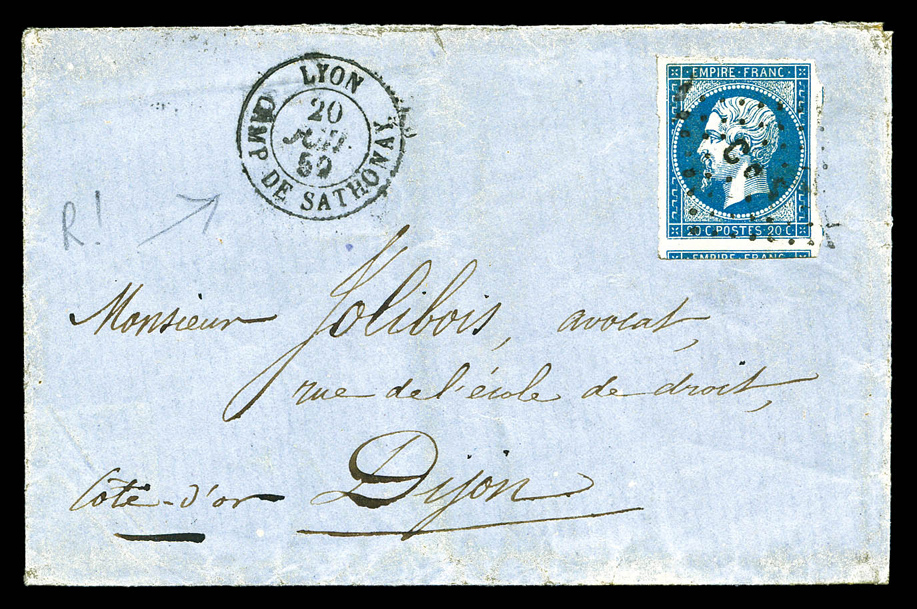 LYON
20
JUIN
59
CAMP DE SATHONAY
EMPIRE · FRANC
20 C POSTES 20 C
EMPIRE · FRANC
R!
Monsieur Jolibois, avocat,
rue de l'école de droit,
Côte-d'or Dijon